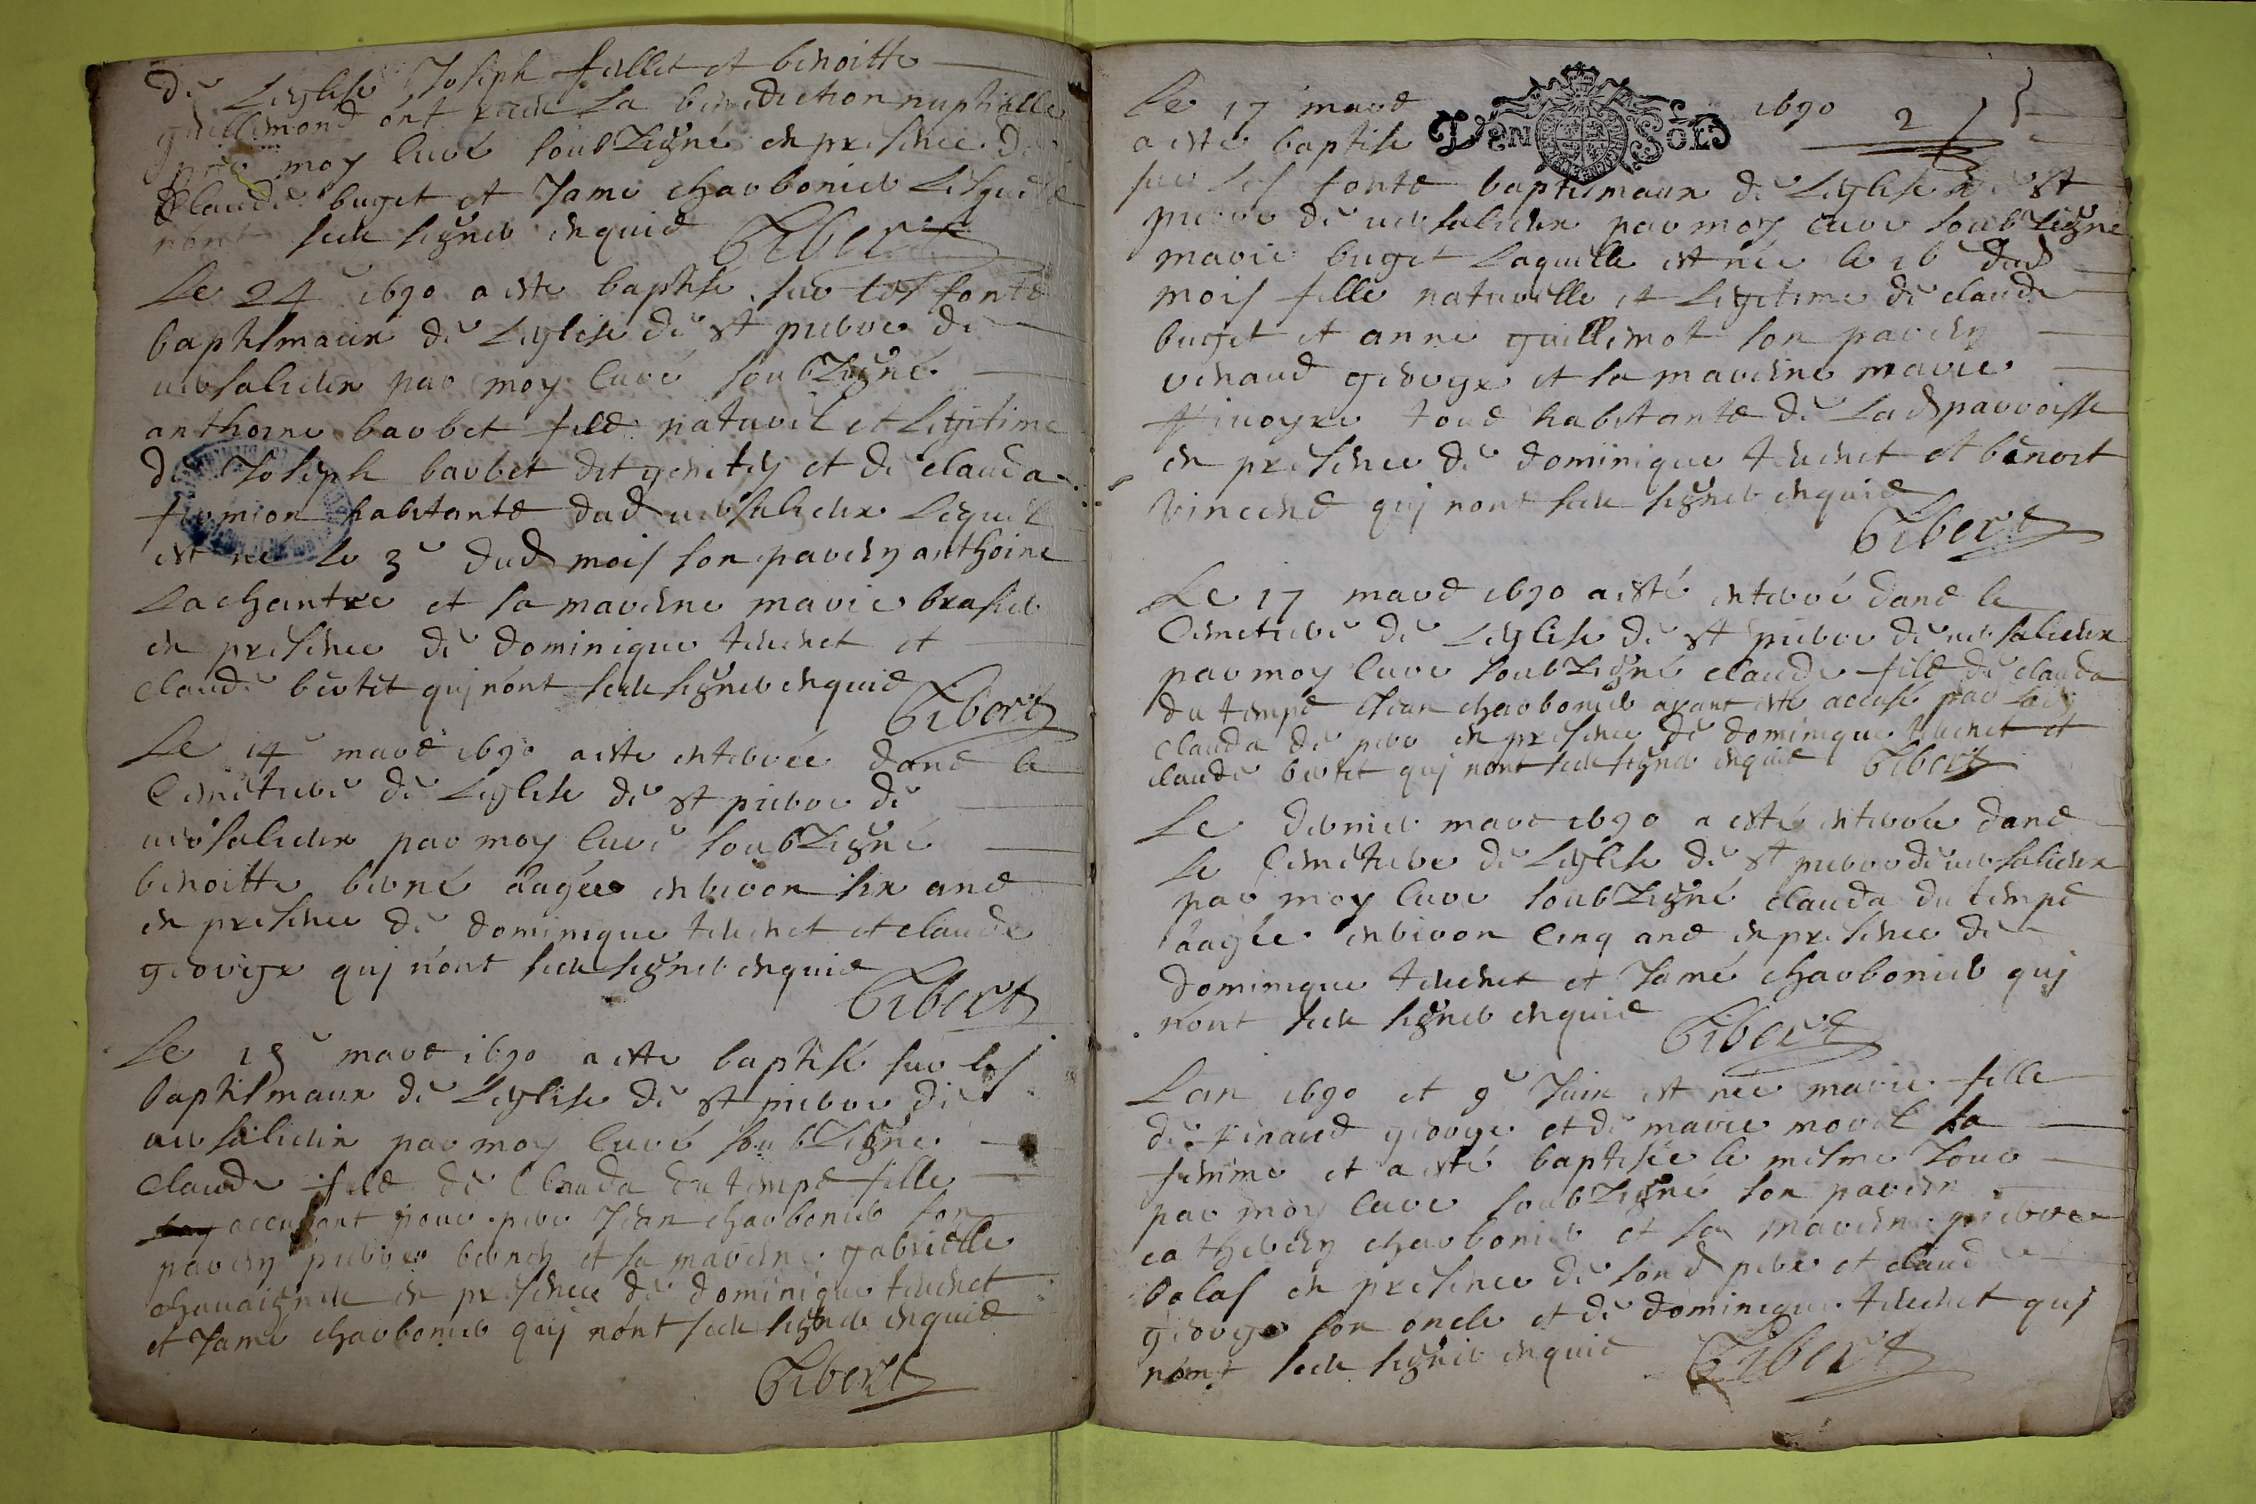 de Leglise Joseph fillet et benoitte
guillimond ont receu La benediction nuptialle
par moy Curé soubzsigné en presence de
Claude buget et Jame charbonier Lesquels
nont sceu signer enquis Gibert
Le 24e 1690 a este baptisé sur les fonts
baptismaux de Leglise de st pierre de
versalieux par moy Curé soubzsigné
anthoine barbet fils naturel et Legitime
de Joseph barbet dit genety et de clauda
fromion habitants dud versalieux Lequel
est né le 3e dud mois son parein anthoine
Lachantre et sa mareine marie brasier
en presence de dominique tuenet et
claude bertet quj nont sceu signer enquis Gibert
Le 14e mars 1690 a este enterrée dans le
Cimetiere de Leglise de st pierre de
versalieux par moy Curé soubzsigné
benoitte berné aagées environ six ans
en presence de dominique tuenet et claude
george quj nont sceu signer enquis
Gibert
Le 15e mars 1690 a este baptisé sur les
baptismaux de Leglise de st pierre de
versalieux par moy Curé soubzsigné
Claude fils de Clauda du temps fille
accusant pour pere Jean charbonier son
parein pierre berney et sa mareine gabrielle
en presence de dominique tuenet
et Jame charbonier quj nont sceu signer enquis
Gibert
Le 17 mars 1690 2
DEN SOLS
a esté baptisé
sur les fonts baptismaux de Leglise de st
pierre de versalieux par moy curé soubzsigné
marie buget Laquelle est née le 16e dud
mois fille naturelle et Legitime de claude
buget et anne guillemot son parein
renaud george et sa mareine marie
tous habitants de Lad parroisse
en presence de dominique tuenet et benoit
vincend quj nont sceu signer enquis
Gibert
Le 17 mars 1690 a esté enterré dans le
Cimetiere de Leglise de st pierre de versalieux
par moy Curé soubzsigné claude fils de clauda
du temps et Jean charbonier ayant esté accusé par lad
clauda de pere en presence de dominique tuenet et
claude bertet quj nont sceu signer enquis Gibert
Le dernier mars 1690 a esté enterrée dans
Le Cimetiere de Leglise de st pierre de versalieux
par moy Curé soubzsigné clauda du temps
aagée environ Cinq ans en presence de
dominique tuenet et Jamé charbonier quj
nont sceu signer enquis Gibert
Lan 1690 et 9e Juin est née marie fille
de renaud george et de marie morel sa
femme et a esté baptisée le mesme Jour
par moy Curé soubzsigné son parein
charbonier et sa mareine pierre
balas en presence de sond pere et claude
george son oncle et de dominique tuenet quj
nont sceu signer enquis Gibert